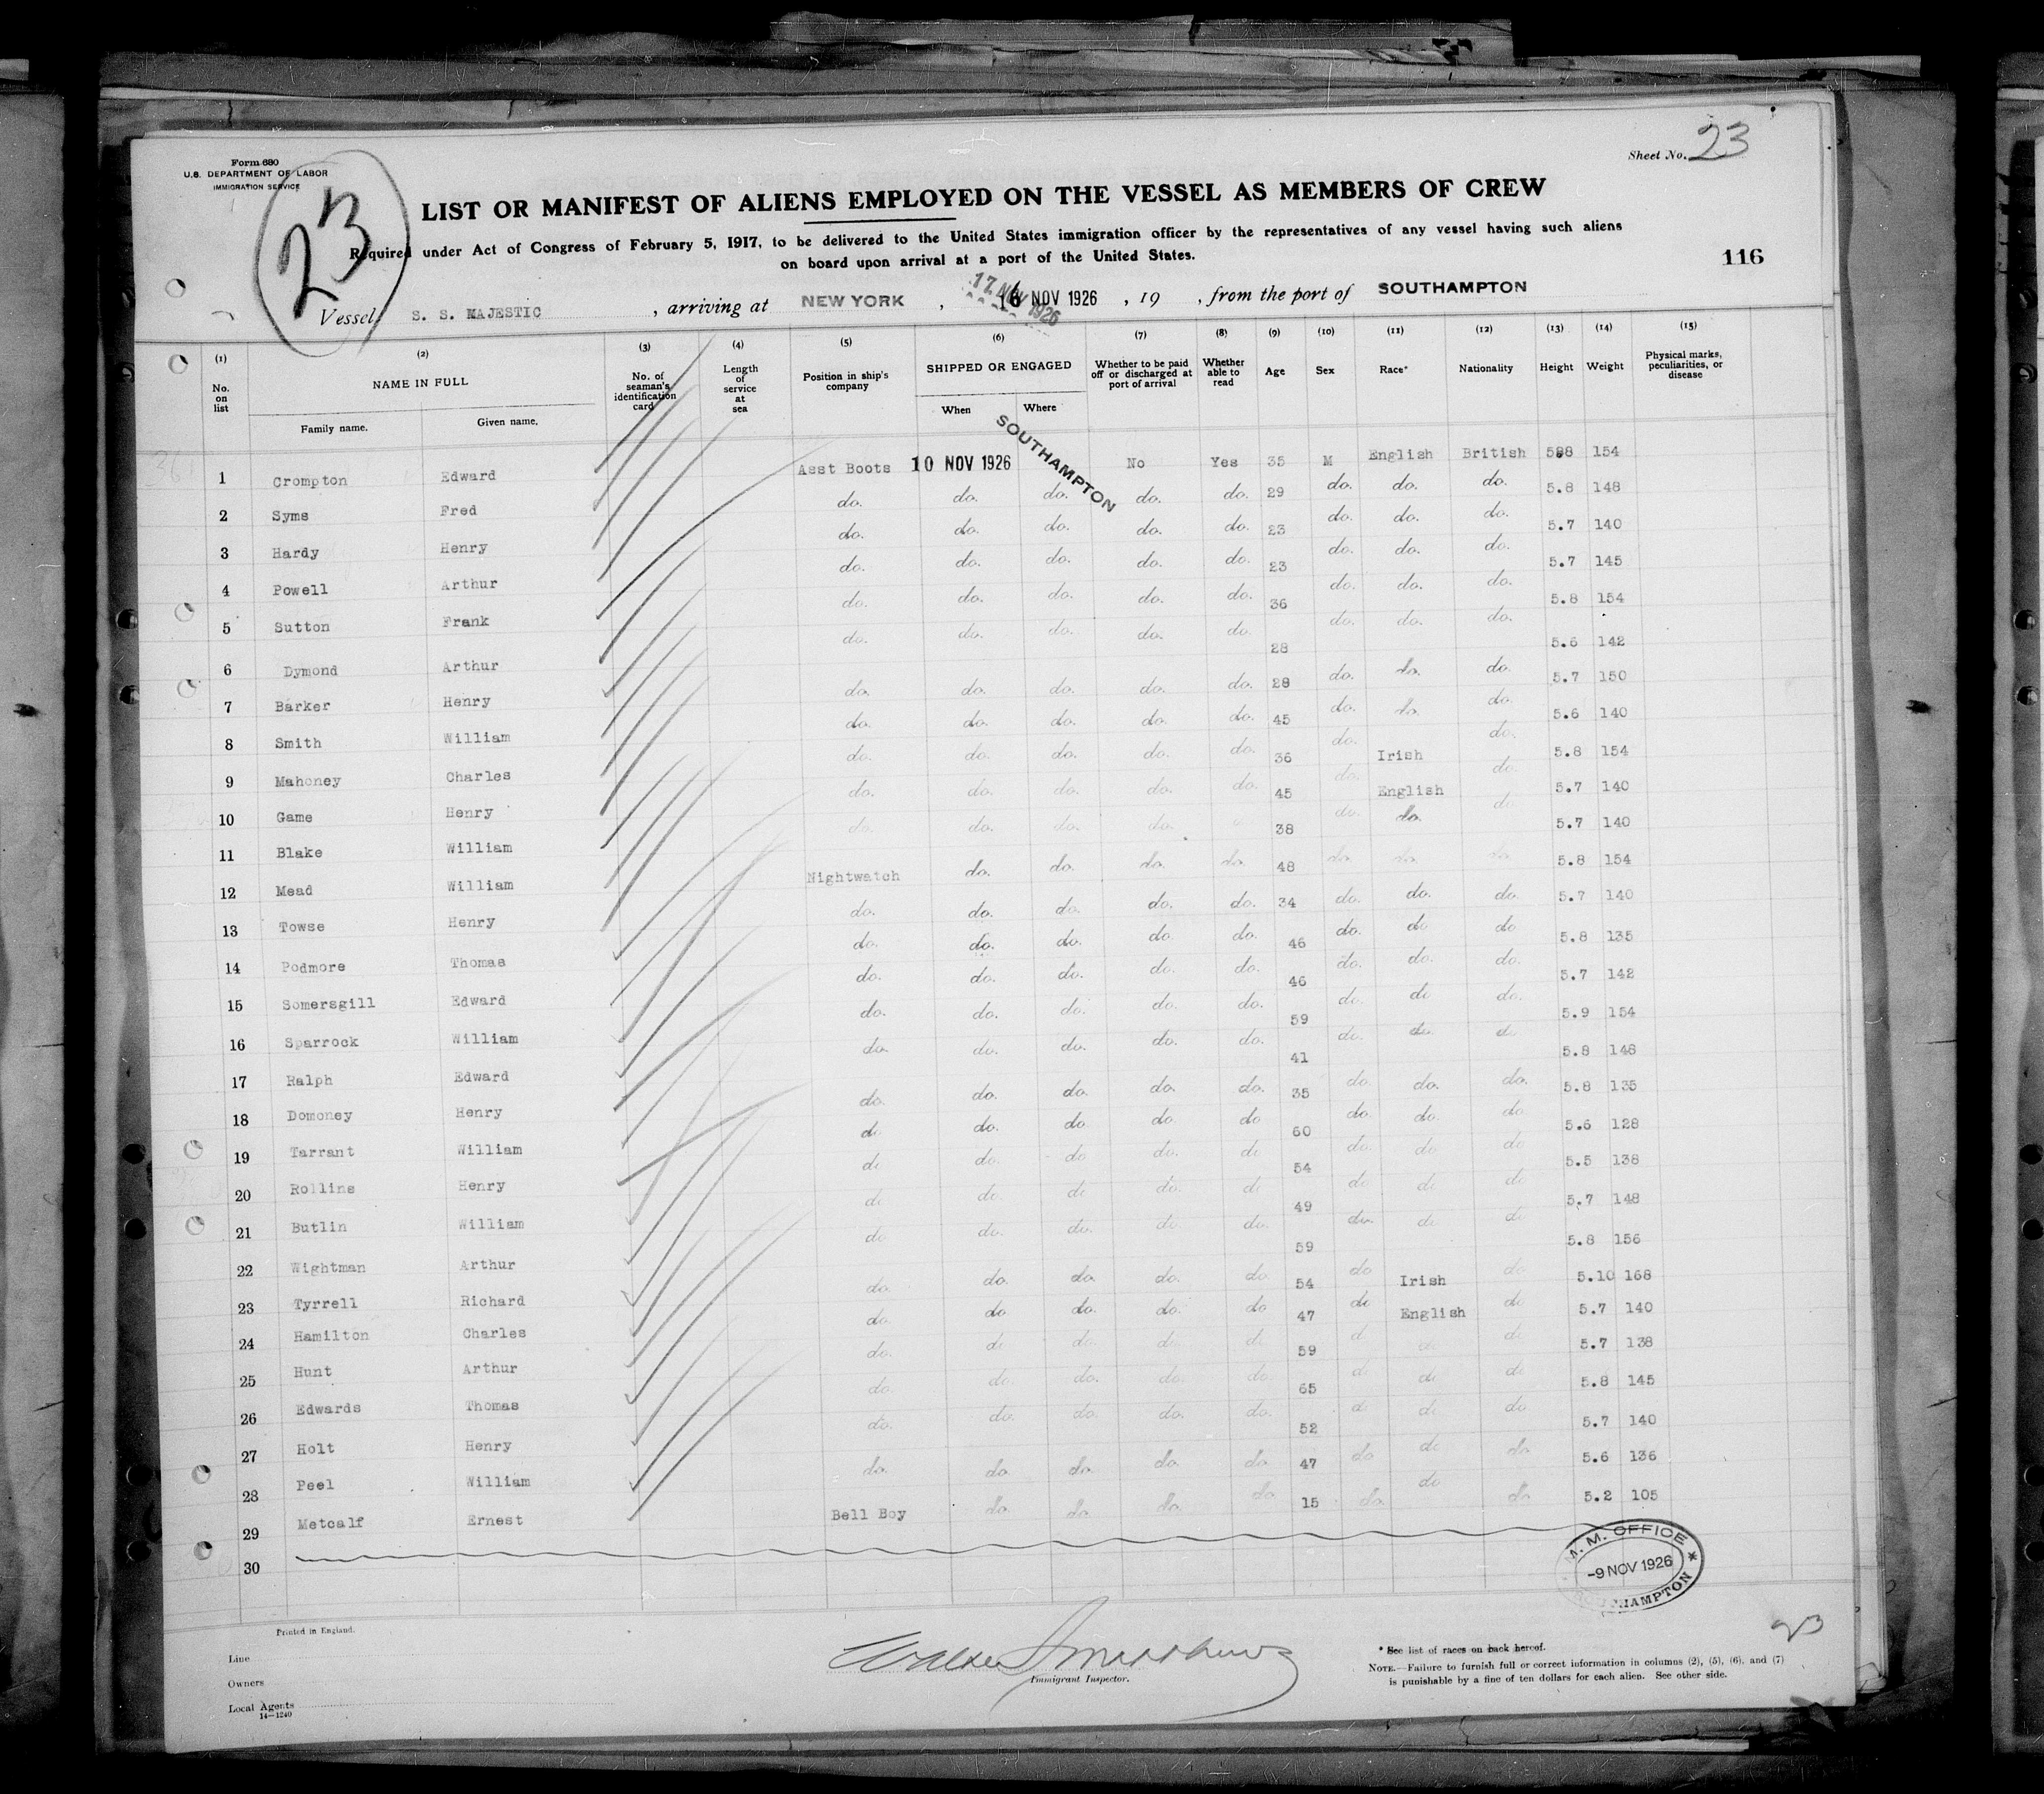 Sheet No. 23
Form 680
U.S. DEPARTMENT OF LABOR
IMMIGRATION SERVICE
23
LIST OR MANIFEST OF ALIENS EMPLOYED ON THE VESSEL AS MEMBERS OF CREW
Required under Act of Congress of February 5, 1917, to be delivered to the United States immigration officer by the representatives of any vessel having such aliens
on board upon arrival at a port of the United States.
116
Vessel S. S. MAJESTIC , arriving at NEW YORK , 16 NOV 1926 , 19 , from the port of SOUTHAMPTON
17 NOV 1926
(1) (2) (3) (4) (5) (6) (7) (8) (9) (10) (11) (12) (13) (14) (15)
No. on list NAME IN FULL No. of seaman's identification card Length of service at sea Position in ship's company SHIPPED OR ENGAGED Whether to be paid off or discharged at port of arrival Whether able to read Age Sex Race* Nationality Height Weight Physical marks, peculiarities, or disease
Family name. Given name. When Where
1 Crompton Edward Asst Boots 10 NOV 1926 SOUTHAMPTON No Yes 35 M English British 5.8 154
2 Syms Fred do. do. do. do. do. 29 do. do. do. 5.8 148
3 Hardy Henry do. do. do. do. do. 23 do. do. do. 5.7 140
4 Powell Arthur do. do. do. do. do. 23 do. do. do. 5.7 145
5 Sutton Frank do. do. do. do. do. 36 do. do. do. 5.8 154
6 Dymond Arthur do. do. do. do. do. 28 do. do. do. 5.6 142
7 Barker Henry do. do. do. do. do. 28 do. do. do. 5.7 150
8 Smith William do. do. do. do. do. 45 do. do. do. 5.6 140
9 Mahoney Charles do. do. do. do. do. 36 do. Irish do. 5.8 154
10 Game Henry do. do. do. do. do. 45 do. English do. 5.7 140
11 Blake William do. do. do. do. 38 do. do. do 5.7 140
12 Mead William Nightwatch do. do. do. do. 48 do. do. do. 5.8 154
13 Towse Henry do. do. do. do. do. 34 do. do. do. 5.7 140
14 Podmore Thomas do. do. do. do. do. 46 do. do do 5.8 135
15 Somersgill Edward do. do. do. do. do. 46 do. do. do. 5.7 142
16 Sparrock William do. do. do. do. do. 59 do. do do. 5.9 154
17 Ralph Edward do. do. do. do. do. 41 do. do. do 5.8 148
18 Domoney Henry do. do. do. do. do. 35 do. do. do. 5.8 135
19 Tarrant William do. do. do do. do 60 do. do. do 5.6 128
20 Rollins Henry do do. do do. do 54 do. do do 5.5 138
21 Butlin William do do. do do. do 49 do do do 5.7 148
22 Wightman Arthur do do. do. do do. 59 do. do do 5.8 156
23 Tyrrell Richard do. do. do. do. do 54 do Irish do 5.10 168
24 Hamilton Charles do. do do. do. do 47 do English do 5.7 140
25 Hunt Arthur do. do do. do. do 59 do do do 5.7 138
26 Edwards Thomas do. do. do. do. do. 65 do do do 5.8 145
27 Holt Henry do. do. do. do. do. 52 do do do 5.7 140
28 Peel William do. do do. do. do 47 do do do 5.6 136
29 Metcalf Ernest Bell Boy do. do. do. do. 15 do. do do 5.2 105
30
M. M. OFFICE
-9 NOV 1926
SOUTHAMPTON
Printed in England.
Line
Owners
Local Agents
14-1240
Immigrant Inspector.
* See list of races on back hereof.
NOTE.—Failure to furnish full or correct information in columns (2), (5), (6), and (7)
is punishable by a fine of ten dollars for each alien. See other side.
23